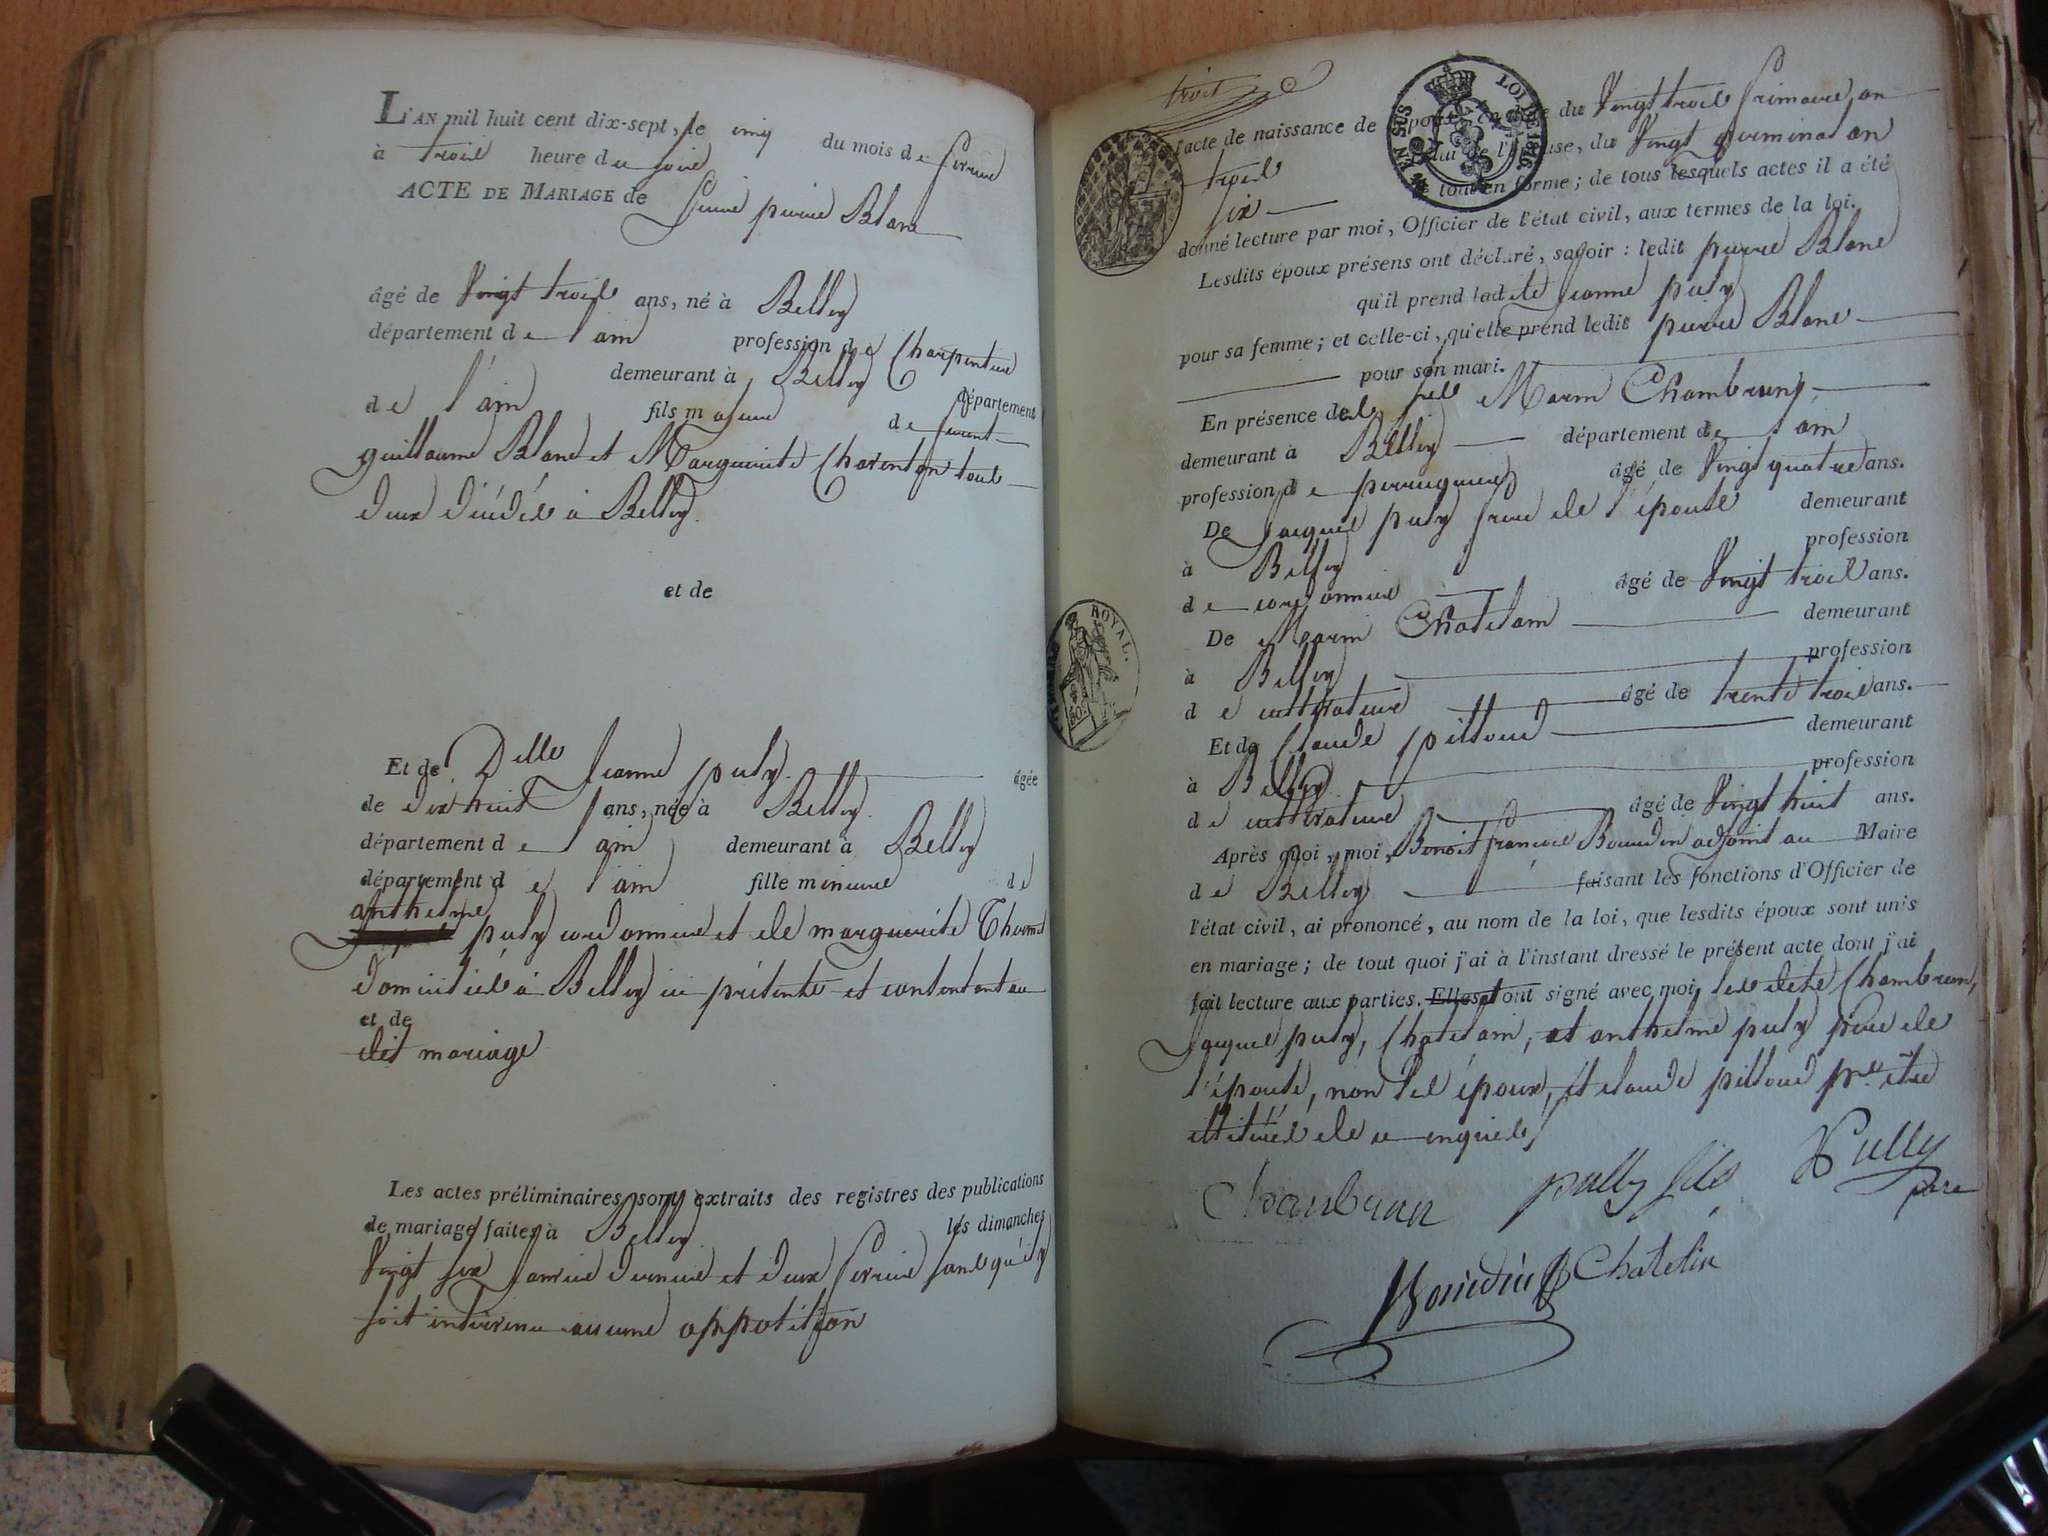 L'AN mil huit cent dix-sept, le cinq du mois de fevrier
à trois heure du soir
ACTE DE MARIAGE de
pierre Blanc
âgé de Vingt trois ans, né à Belley
département de l'ain profession de Charpentier
demeurant à Belley département
de l'ain fils majeur de
guillaume Blanc et Marguerite Charenton tous
deux décédés à Belley.
et de
Et de Delle Jeanne puly. âgée
de dix huit ans, née à Belley.
département de l'ain demeurant à Belley
département de l'ain fille mineure de
anthelme
puly cordonnier et de marguerite
domiciliés à Belley ici présents et consentant au
et de
dit mariage
Les actes préliminaires sont extraits des registres des publications
de mariage faites à Belley les dimanches
Vingt six Janvier dernier et deux fevrier sans qu'il y
soit intervenu aucune opposition
trois
l'acte de naissance de l'époux en date du Vingt trois frimaire an
trois celui de l'épouse, du Vingt germinal an
six tout en forme; de tous lesquels actes il a été
donné lecture par moi, Officier de l'état civil, aux termes de la loi.
Lesdits époux présens ont déclaré, savoir : ledit pierre Blanc
qu'il prend ladite Jeanne puly
pour sa femme; et celle-ci, qu'elle prend ledit pierre Blanc
pour son mari.
En présence de Marin Chambrun,
demeurant à Belley département de l'ain
profession de perruquier âgé de Vingt quatre ans.
De Jacques puly frere de l'épouse demeurant
à Belley profession
de cordonnier âgé de Vingt trois ans.
De Marin Chatelain demeurant
à Belley profession
de cultivateur âgé de trente trois ans.
Et de Claude pilloud demeurant
à Belley profession
de cultivateur âgé de Vingt huit ans.
Après quoi, moi, Benoit françois Bourdin adjoint au Maire
de Belley faisant les fonctions d'Officier de
l'état civil, ai prononcé, au nom de la loi, que lesdits époux sont unis
en mariage; de tout quoi j'ai à l'instant dressé le présent acte dont j'ai
fait lecture aux parties. Elles ont signé avec moi, les dits Chambrun,
Jacques puly, Chatelain, et anthelme puly père de
l'épouse, non les époux, et claude pilloud pr être
illitérés de ce enquis
Chambrun pully fils Pully
père
Bourdin Chatelin
LOI DE 1816
EN SUS
ROYAL.